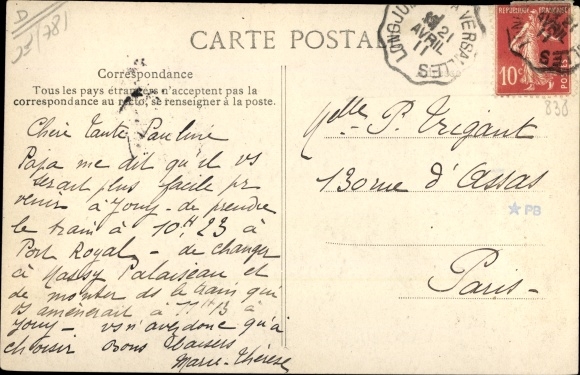 D
23/781
CARTE POSTALE
LONGJUMEAU A VERSAILLES
21
AVRIL
11
10c
POSTES
838
Correspondance
Tous les pays étrangers n'acceptent pas la
correspondance au recto, se renseigner à la poste.
Chère Tante Pauline
Papa me dit qu'il vs
serait plus facile pr
venir à Jouy - de prendre
le train à 10H 23 à
Port Royal - de changer
à Massy Palaiseau et
de monter ds le train qui
vs amènerait à 11H 13 à
Jouy - vs n'avez donc qu'à
choisir Bons Baisers
Marie-Thérèse
Melle P. Trigant
130 rue d'Assas
Paris-
PB